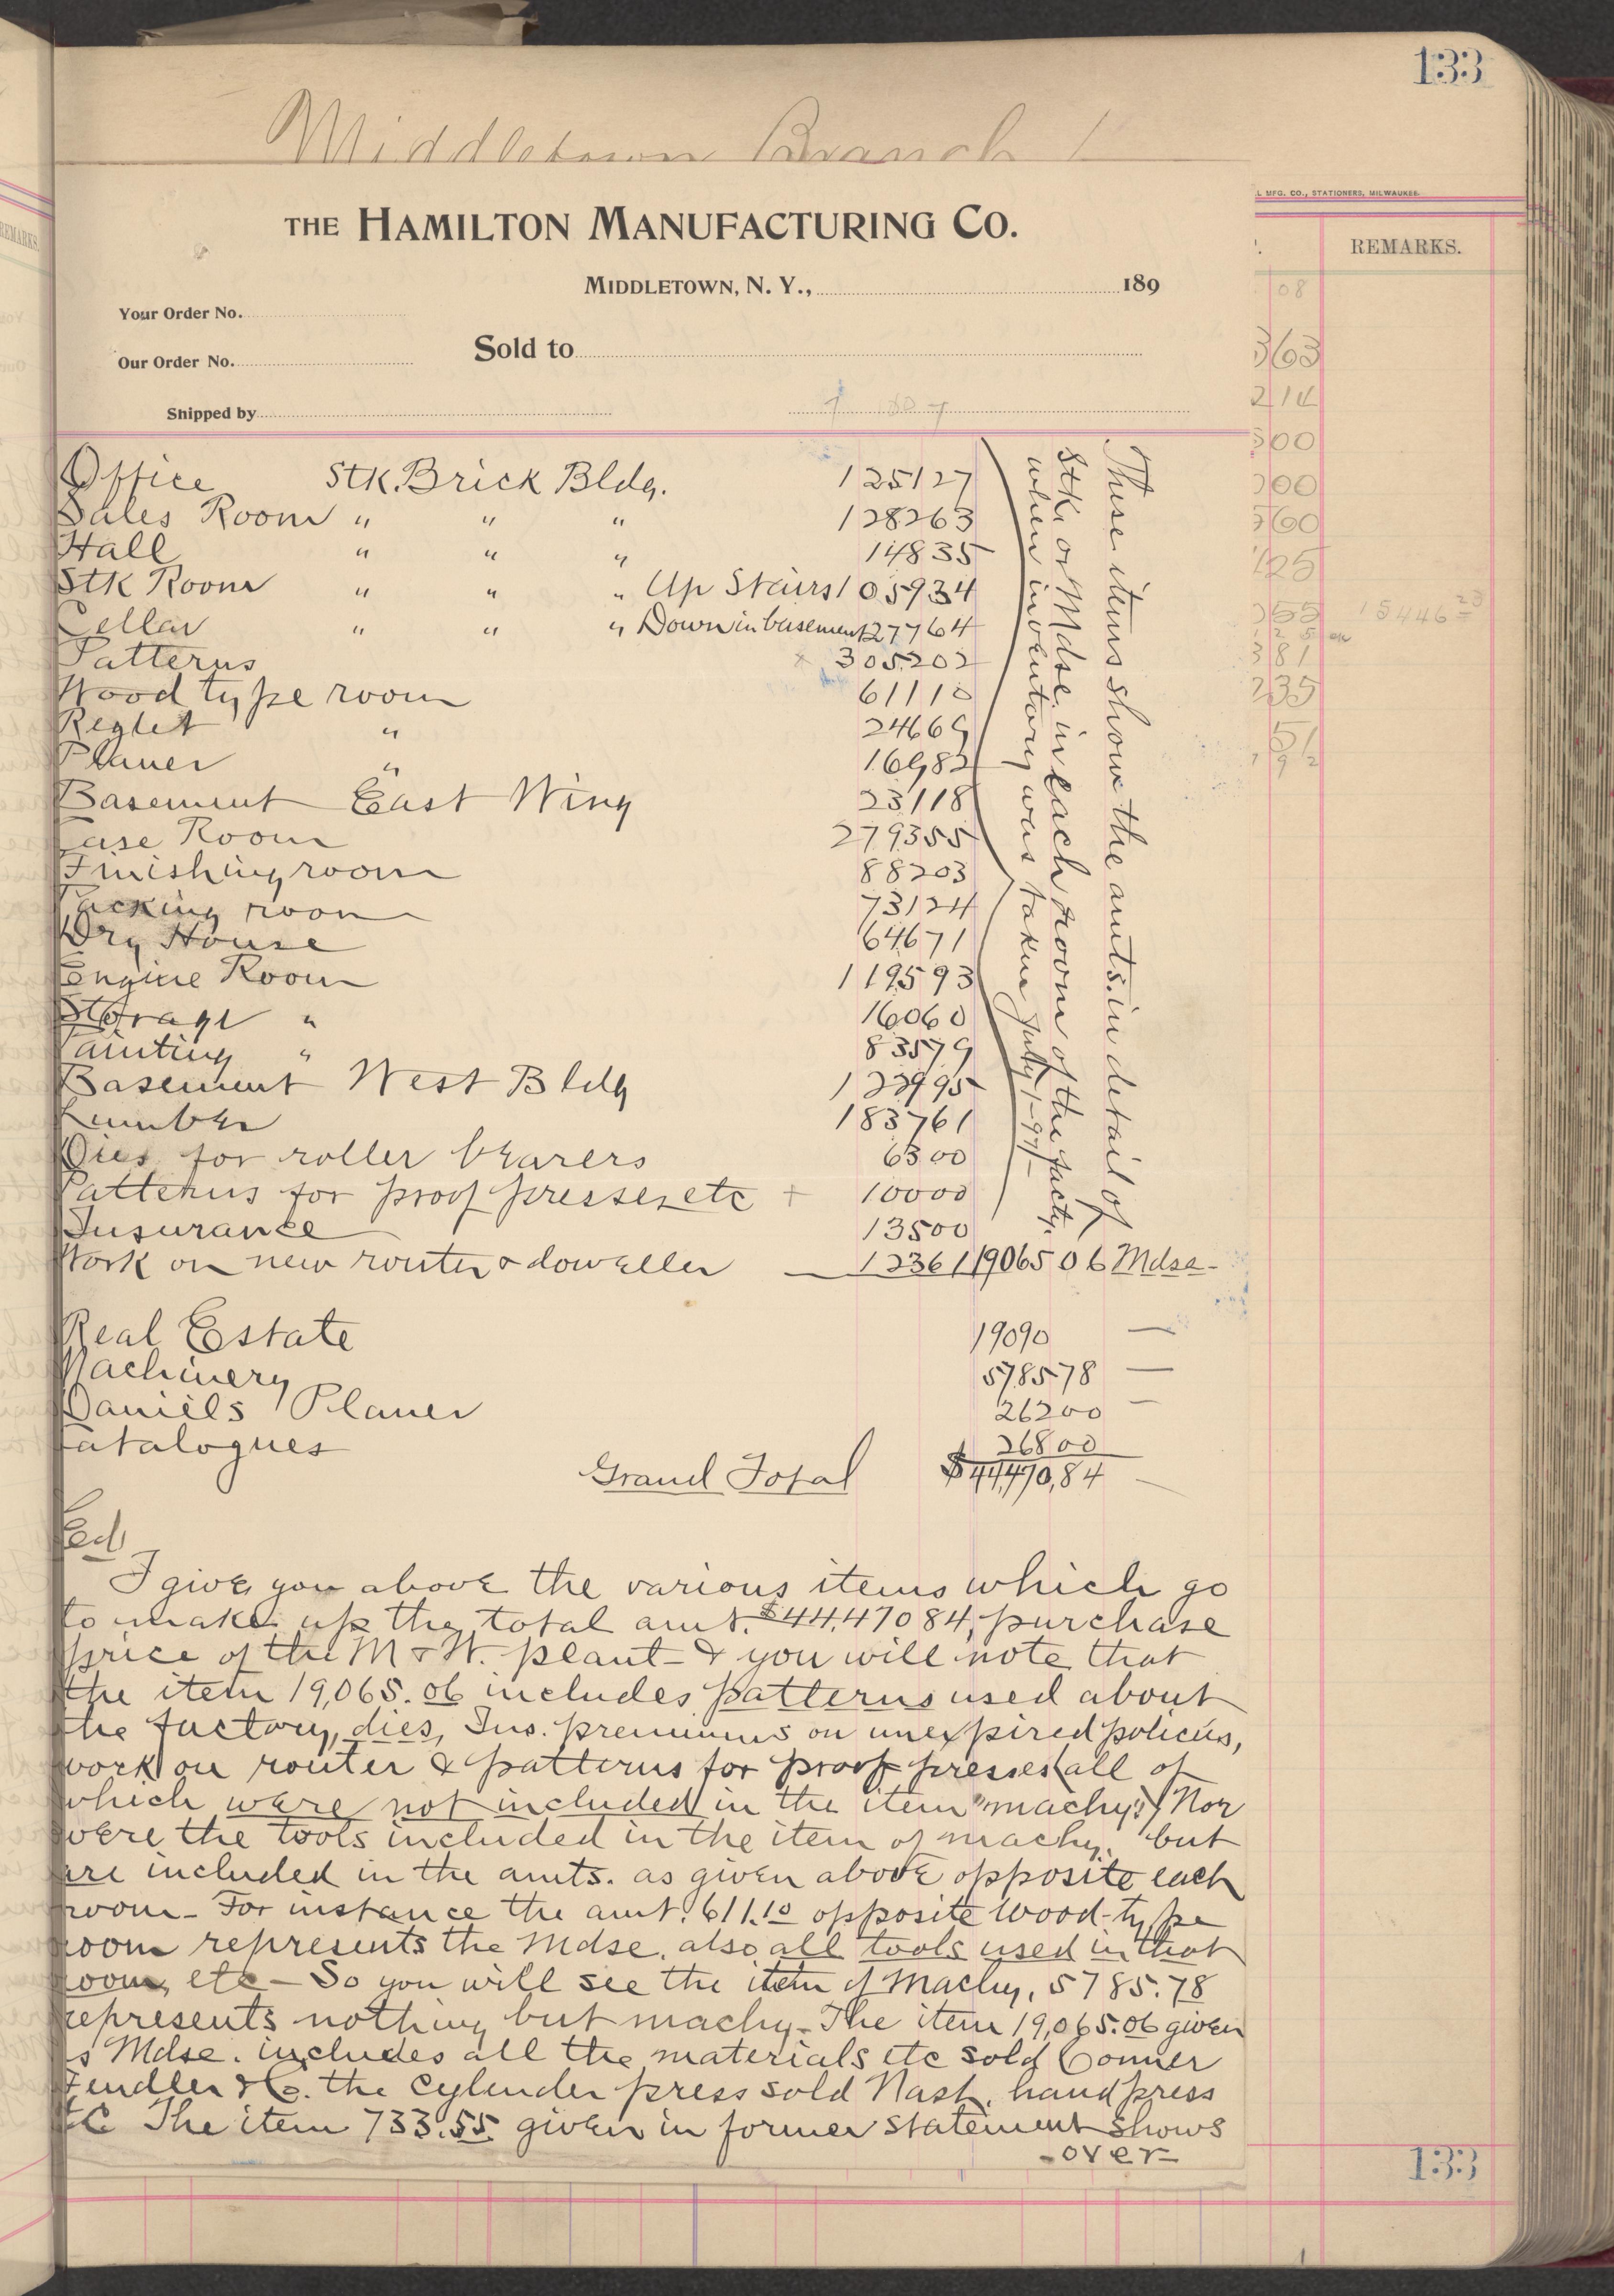 133
Middletown Branch
THE HAMILTON MANUFACTURING CO.
L MFG. CO., STATIONERS, MILWAUKEE.
REMARKS.
REMARKS
MIDDLETOWN, N. Y., 189
Your Order No.
Sold to
Our Order No.
Shipped by
Office Stk. Brick Bldg. 125127
Sales Room " " " 128263
Hall " " " 14835
Stk Room " " " Up Stairs 105934
Cellar " " " Down in basement 127764
Patterns 305202
Wood type room 61110
Reglet " 24669
Planer " 16982
Basement East Wing 23118
Case Room 279355
Finishing room 88203
Packing room 73124
Dry House 64671
Engine Room 119593
Storage " 16060
Painting " 83579
Basement West Bldg 122995
Lumber 183761
Dies for roller bearers 6300
Patterns for proof presses etc + 10000
Insurance 13500
Work on new router & doweller 12361 1906506 Mdse-
These items show the amts. in detail of
Stk. or Mdse. in each room of the facty.
when inventory was taken July 1-97-
Real Estate 19090 —
Machinery 578578 —
Daniels Planer 26200 —
Catalogues 26800
Grand Total $44,470,84
Ed
I give you above the various items which go
to make up the total amt. $44,47084, purchase
price of the M & W. plant - & you will note that
the item 19,065.06 includes patterns used about
the factory, dies, Ins. premiums on unexpired policies,
work on router & patterns for proof presses (all of
which were not included in the item "machy") Nor
were the tools included in the item of machy. but
are included in the amts. as given above opposite each
room - For instance the amt. 611.10 opposite Wood-type
room represents the Mdse. also all tools used in that
room, etc - So you will see the item of Machy, 5785.78
represents nothing but machy - The item 19,065.06 given
as Mdse. includes all the materials etc sold Conner
Fendler & Co. the cylinder press sold Nash, hand press
&C The item 733.55 given in former statement shows
- over -
08
363
214
500
000
560
125
055 1544623
381
235
51
133